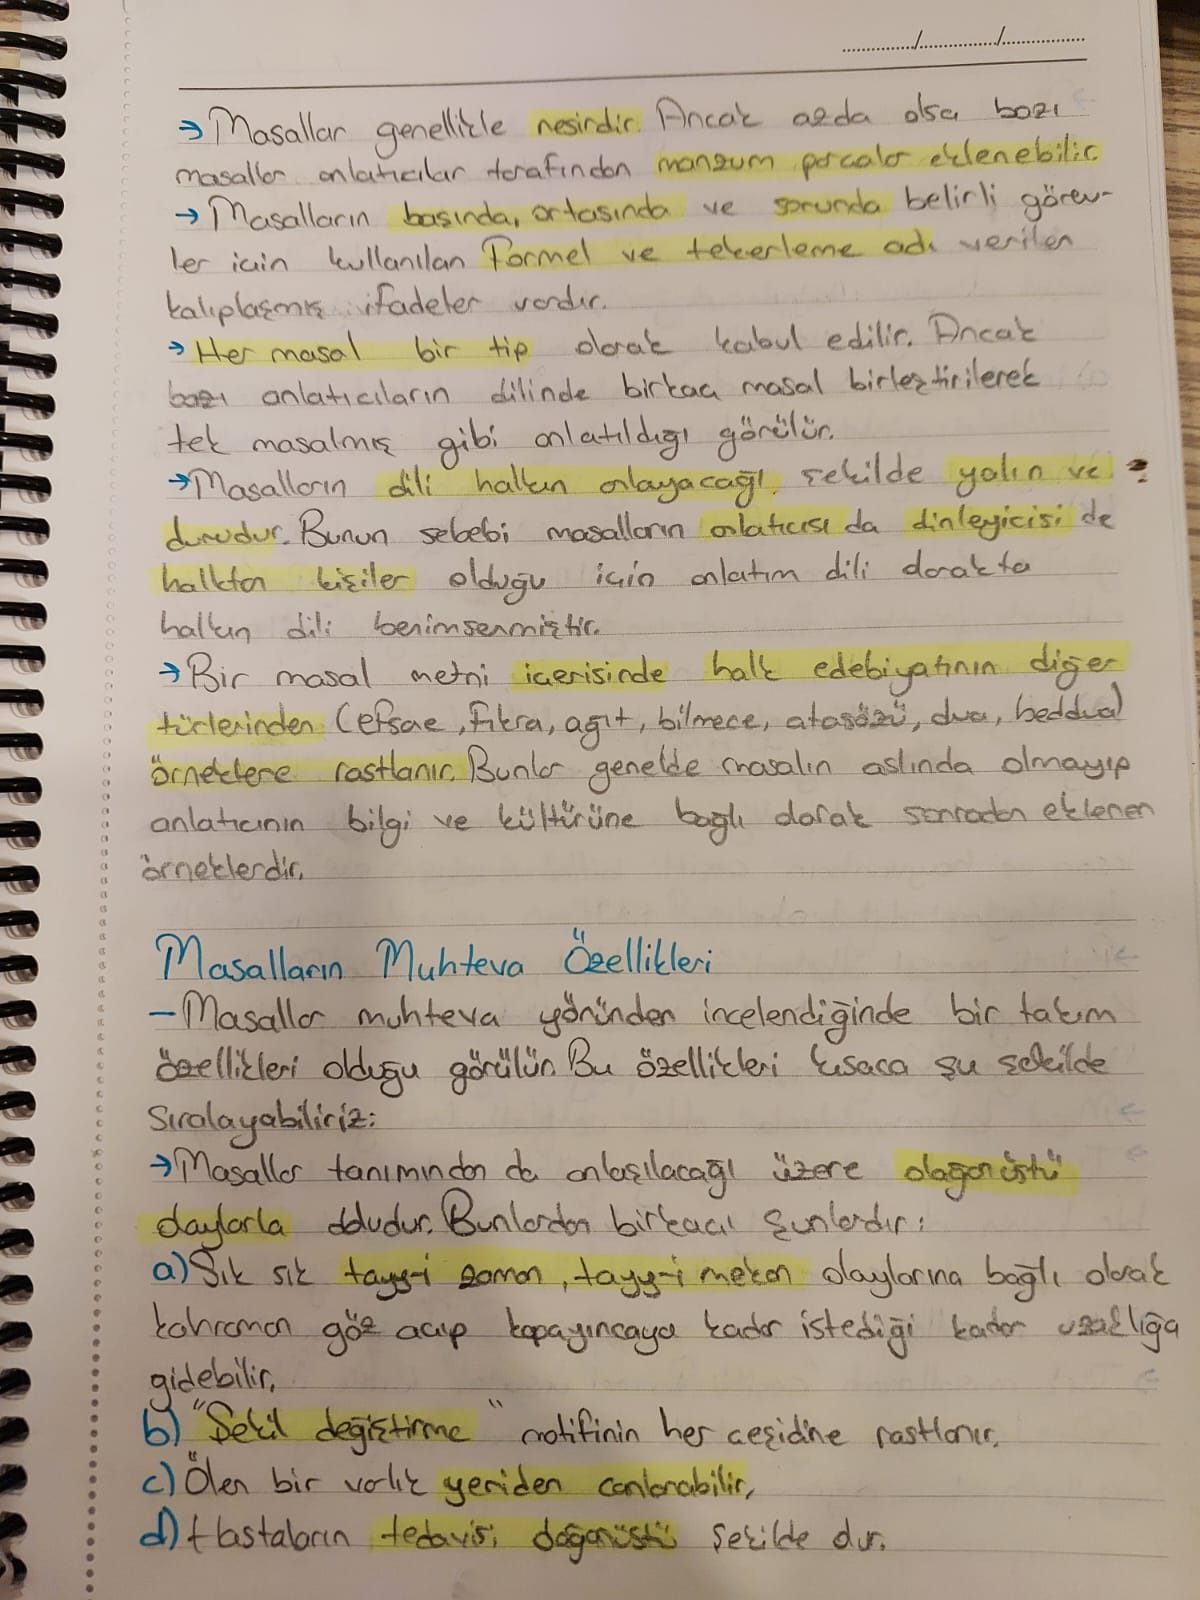 → Masallar genellikle nesirdir. Ancak azda olsa bazı
masallar anlatıcılar tarafından manzum parçalar eklenebilir.
→ Masalların başında, ortasında ve sonunda belirli görev-
ler için kullanılan Formel ve tekerleme adı verilen
kalıplaşmış ifadeler vardır.
→ Her masal bir tip olarak kabul edilir. Ancak
bazı anlatıcıların dilinde birkaç masal birleştirilerek
tek masalmış gibi anlatıldığı görülür.
→ Masalların dili halkın anlayacağı şekilde yalın ve
durudur. Bunun sebebi masalların anlatıcısı da dinleyicisi de
halktan kişiler olduğu için anlatım dili olarakta
halkın dili benimsenmiştir.
→ Bir masal metni içerisinde halk edebiyatının diğer
türlerinden (efsae, fıkra, ağıt, bilmece, atasözü, dua, beddua)
örneklere rastlanır. Bunlar genelde masalın aslında olmayıp
anlatıcının bilgi ve kültürüne bağlı olarak sonradan eklenen
örneklerdir.
Masalların Muhteva Özellikleri
— Masallar muhteva yönünden incelendiğinde bir takım
özellikleri olduğu görülür. Bu özellikleri kısaca şu şekilde
sıralayabiliriz:
→ Masallar tanımından da anlaşılacağı üzere olağanüstü
olaylarla doludur. Bunlardan birkaçı şunlardır:
a) Sık sık tayy-i zaman, tayy-i mekan olaylarına bağlı olarak
kahraman göz açıp kapayıncaya kadar istediği kadar uzaklığa
gidebilir.
b) "Şekil değiştirme" motifinin her çeşidine rastlanır.
c) Ölen bir varlık yeniden canlanabilir,
d) Hastaların tedavisi olağanüstü şekilde olur.